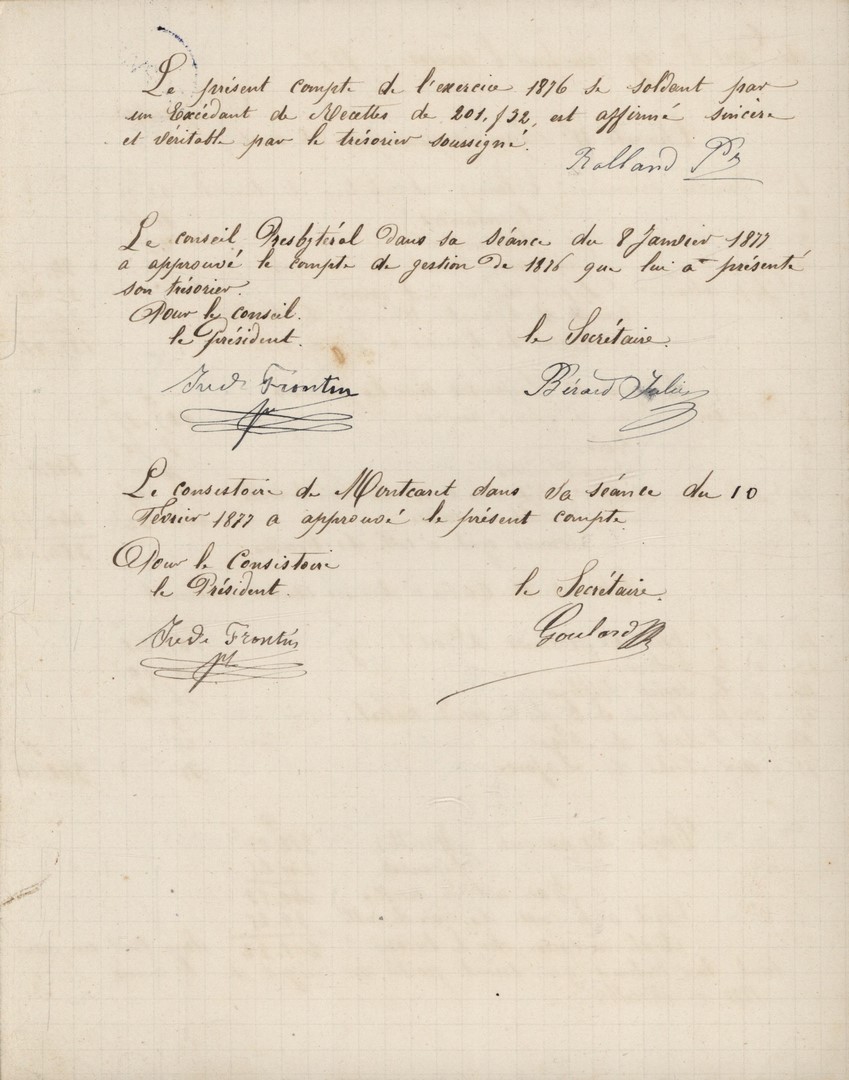 Le présent compte de l'exercice 1876 se soldant par
un Excédant de Recettes de 201,f32, est affirmé sincère
et véritable par le trésorier soussigné.
Rolland
Le conseil Presbytéral dans sa séance du 8 Janvier 1877
a approuvé le compte de gestion de 1876 que lui a présenté
son trésorier.
Pour le conseil.
le président.
le Secrétaire.
Fréd. Frontin
Bérard Julien
Le consistoire de Montcaret dans sa séance du 10
Février 1877 a approuvé le présent compte.
Pour le Consistoire
le Président.
le Secrétaire.
Fréd. Frontin
Goulard